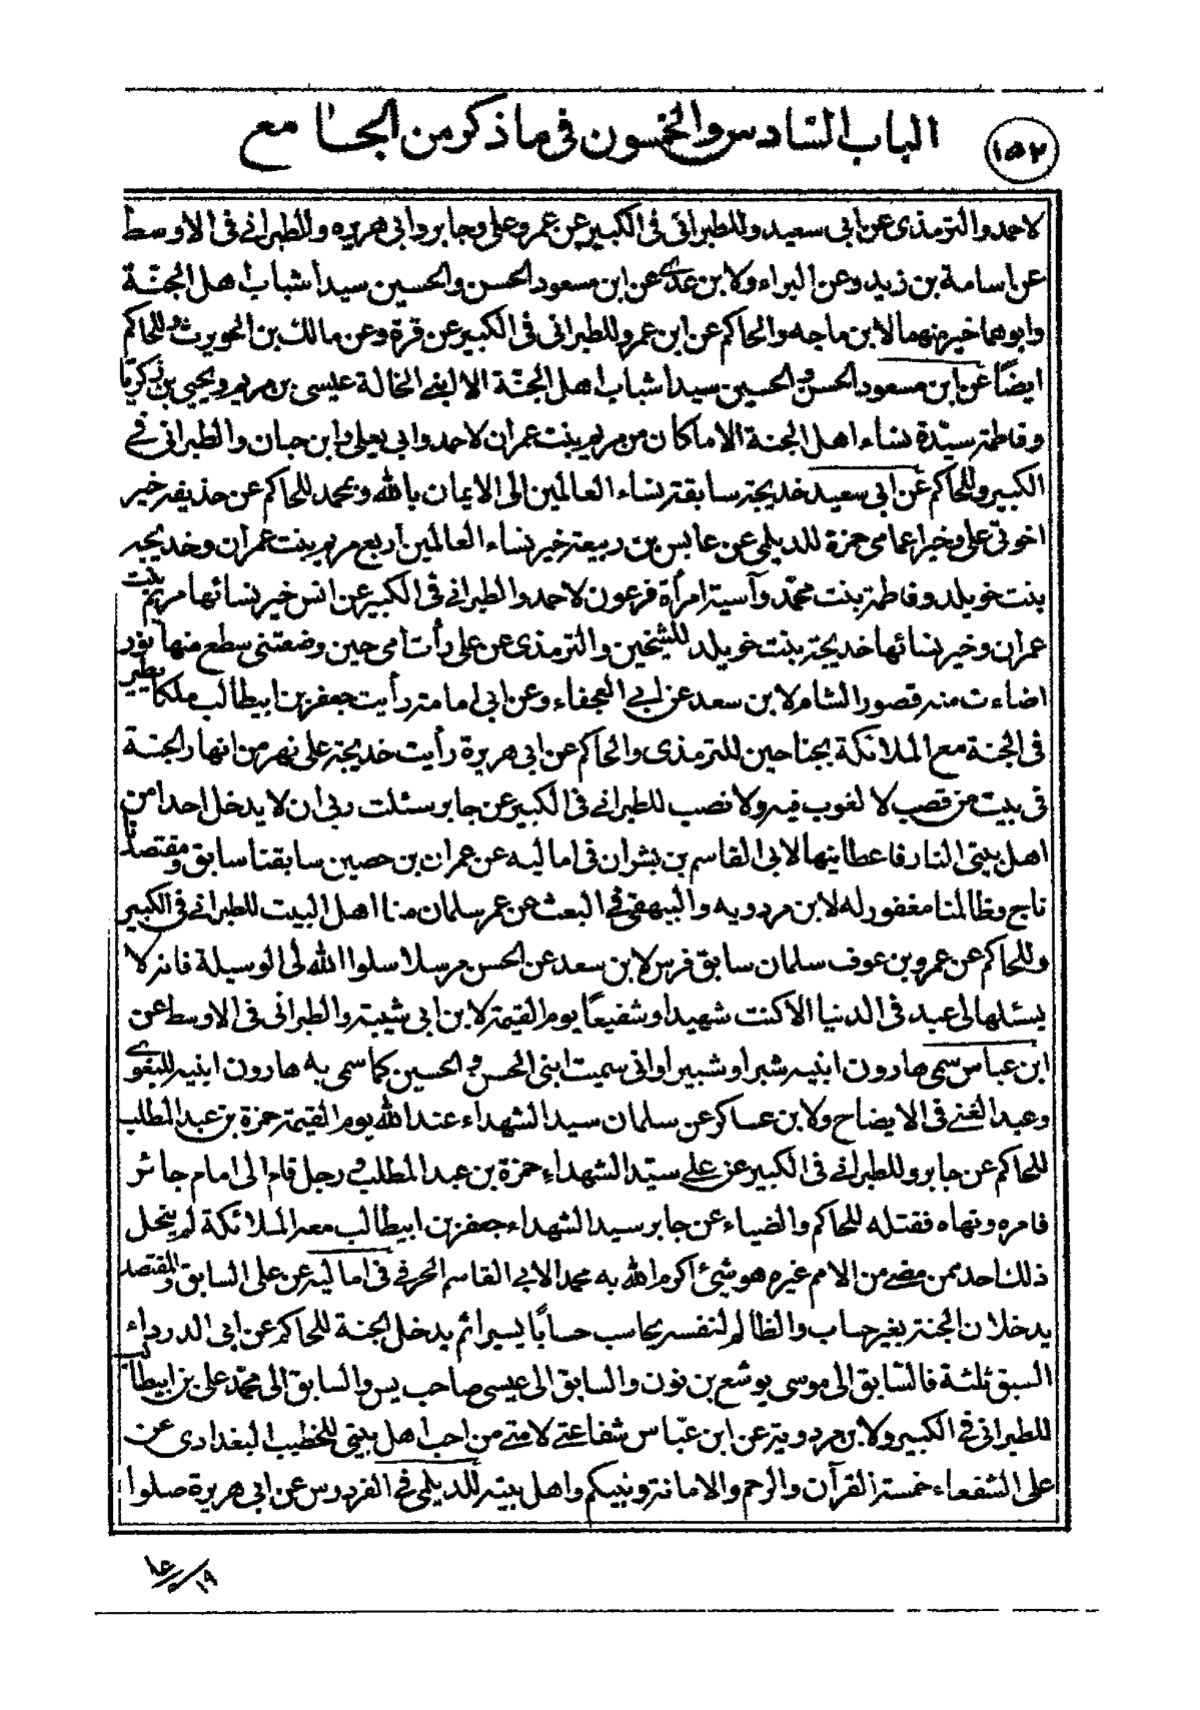 ١٥٢
الباب السّادس والخمسون فى ما ذكر من الجامع
لاحمد والترمذى عن ابى سعيد وللطبرانى فى الكبير عن عمر وعلى وجابر وابى هريره وللطبرانى فى الاوسط
عن اسامة بن زيد وعن البراء ولابن عدى عن ابن مسعود الحسن والحسين سيدا شباب اهل الجنّة
وابوهما خير منهما لابن ماجه والحاكم عن ابن عمر وللطبرانى فى الكبير عن قرة وعن مالك بن الحويرث وللحاكم
ايضًا عن ابن مسعود الحسن والحسين سيدا شباب اهل الجنّة الا ابنى الخالة عيسى بن مريم ويحيى بن زكريا
وفاطمة سيّدة نساء اهل الجنة الا ما كان من مريم بنت عمران لاحمد وابى يعلى وابن حبان والطبرانى فى
الكبير وللحاكم عن ابى سعيد خديجة سابقة نساء العالمين الى الايمان بالله وبمحمد للحاكم عن حذيفة خير
اخوتى على وخير اعمامى حمزة للديلمى عن عابس بن ربيعة خير نساء العالمين اربع مريم بنت عمران وخديجة
بنت خويلد وفاطمة بنت محمّد وآسية امرأة فرعون لاحمد والطبرانى فى الكبير عن انس خير نسائها مريم بنت
عمران وخير نسائها خديجة بنت خويلد للشيخين والترمذى عن على رأت امى حين وضعتنى سطع منها نور
اضاءت منه قصور الشام لابن سعد عن ابى العجفاء وعن ابى امامة رأيت جعفر بن ابيطالب ملكا يطير
فى الجنة مع الملائكة بجناحين للترمذى والحاكم عن ابى هريرة رأيت خديجة على نهر من انهار الجنة
فى بيت من قصب لا لغوب فيه ولا نصب للطبرانى فى الكبير عن جابر سئلت ربى ان لا يدخل احدا من
اهل بيتى النار فاعطانيها لابى القاسم بن بشران فى اماليه عن عمران بن حصين سابقنا سابق ومقتصدنا
ناج وظالمنا مغفور له لابن مردويه والبيهقى فى البعث عن عمر سلمان منا اهل البيت للطبرانى فى الكبير
وللحاكم عن عمرو بن عوف سلمان سابق فرس لابن سعد عن الحسن مرسلا سلوا الله لى الوسيلة فانه لا
يسئلها لى عبد فى الدنيا الا كنت شهيدا وشفيعًا يوم القيمة لابن ابى شيبة والطبرانى فى الاوسط عن
ابن عباس سمى هارون ابنيه شبرا وشبيرا وانى سميت ابنى الحسن والحسين كما سمى به هارون ابنيه للبغوى
وعبد الغنى فى الايضاح ولابن عساكر عن سلمان سيد الشهداء عند الله يوم القيمة حمزة بن عبد المطلب
للحاكم عن جابر وللطبرانى فى الكبير عن على سيّد الشهداء حمزة بن عبد المطلب ورجل قام الى امام جائر
فامره ونهاه فقتله للحاكم والضياء عن جابر سيد الشهداء جعفر بن ابيطالب معه الملائكة لم ينحل
ذلك احد ممن مضى من الامم غيره هو شئ اكرم الله به محمدا لابى القاسم الحرفى فى اماليه عن على السابق والمقتصد
يدخلان الجنة بغير حساب والظالم لنفسه يحاسب حسابًا يسيرا ثم يدخل الجنة للحاكم عن ابى الدرداء
السبق ثلثة فالسّابق الى موسى يوشع بن نون والسابق الى عيسى صاحب يس والسابق الى محمّد على بن ابيطالب
للطبرانى فى الكبير ولابن مردوية عن ابن عبّاس شفاعتى لامتى من احب اهل بيتى للخطيب البغدادى عن
على الشفعاء خمسة القرآن والرحم والامانة ونبيكم واهل بيته للديلمى فى الفردوس عن ابى هريرة صلوا